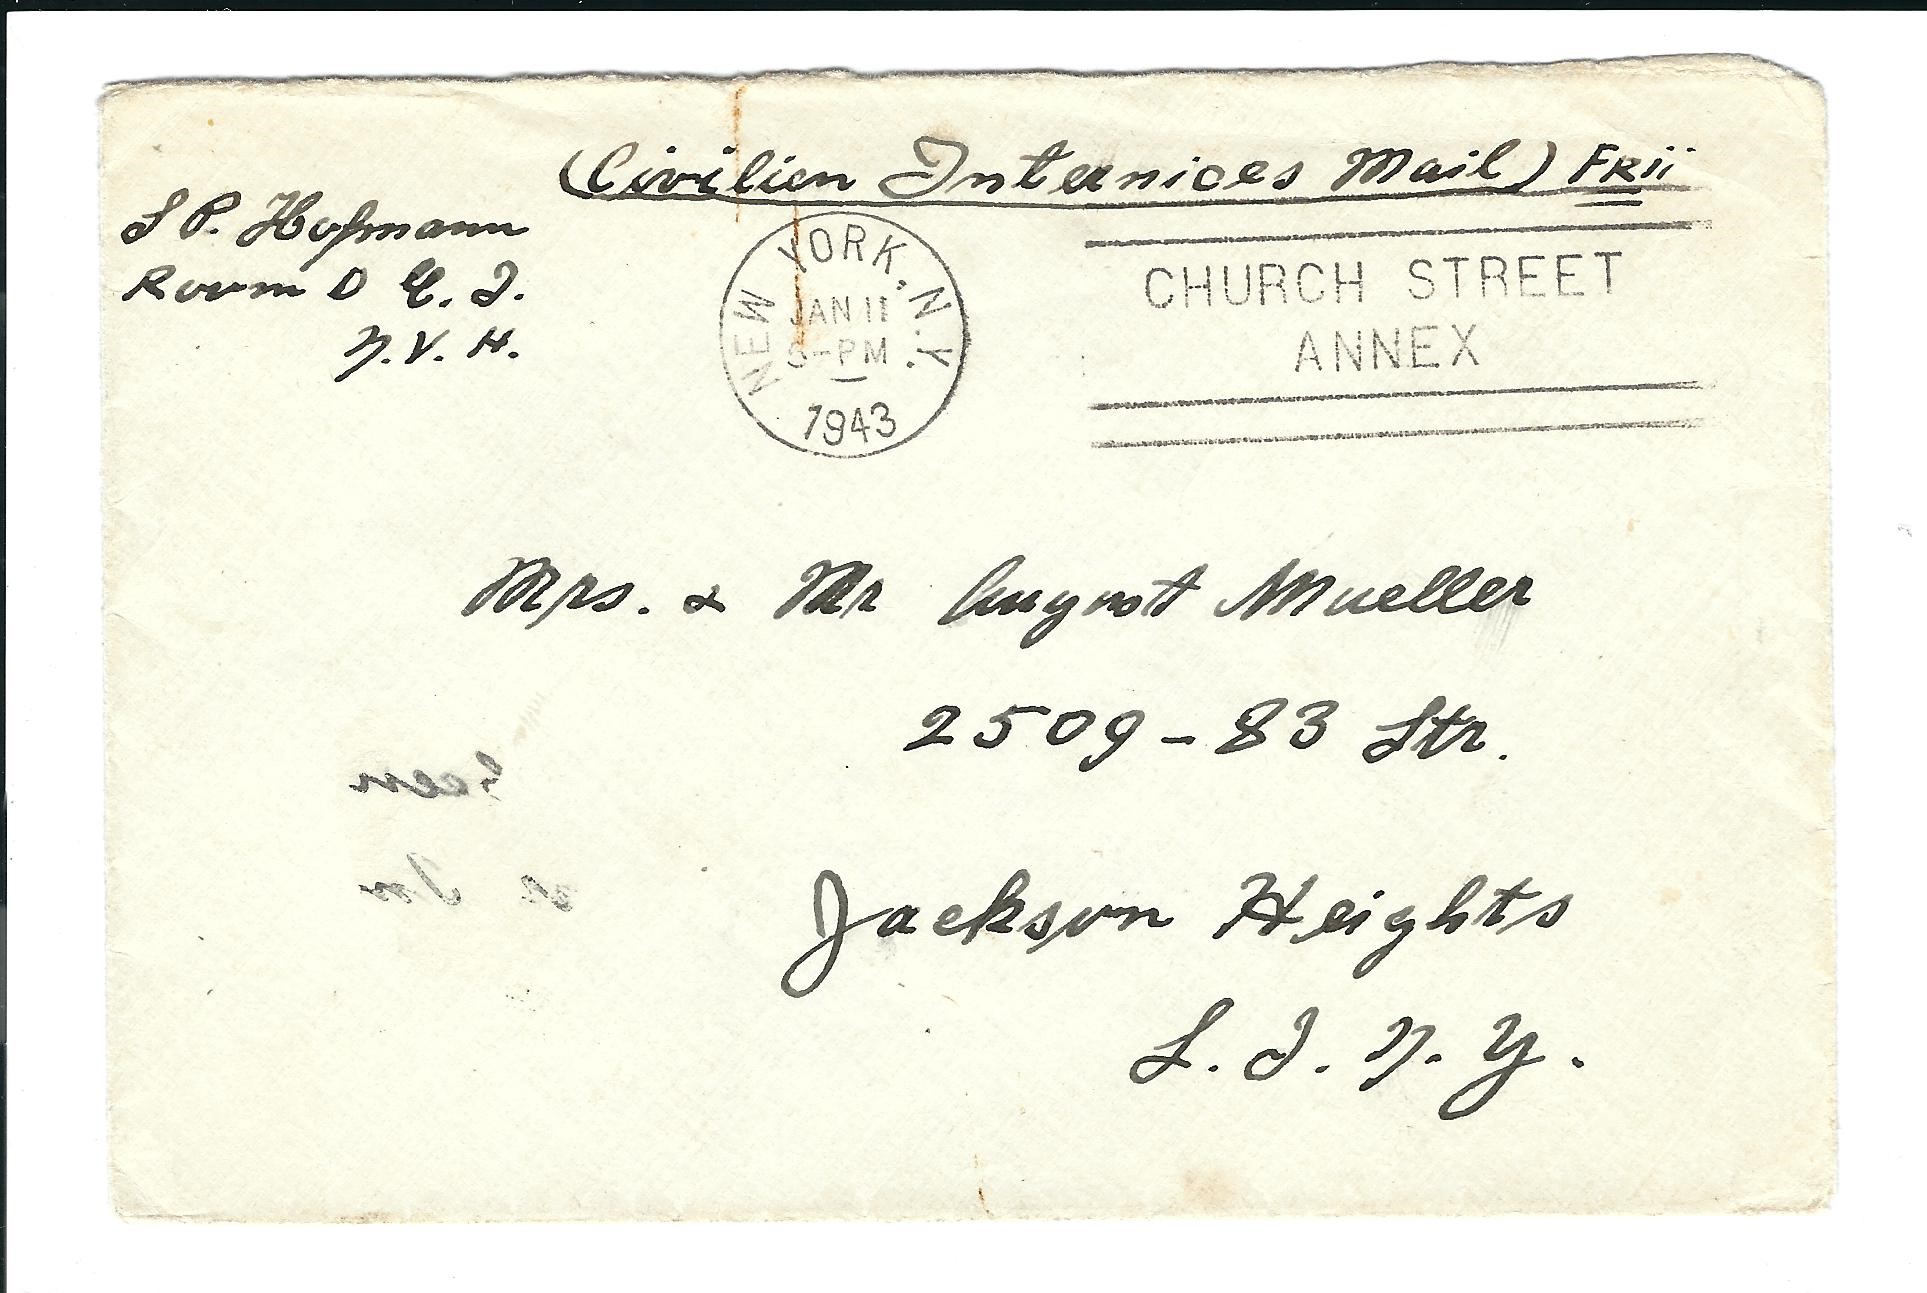 (Civilien Internices Mail) FRii
S P. Hofmann
Room D E. I.
N. Y. H.
NEW YORK, N.Y.
JAN 11
5-PM
1943
CHURCH STREET
ANNEX
Mrs. & Mr August Mueller
2509 - 83 Str.
Jackson Heights
L. I. N. Y.